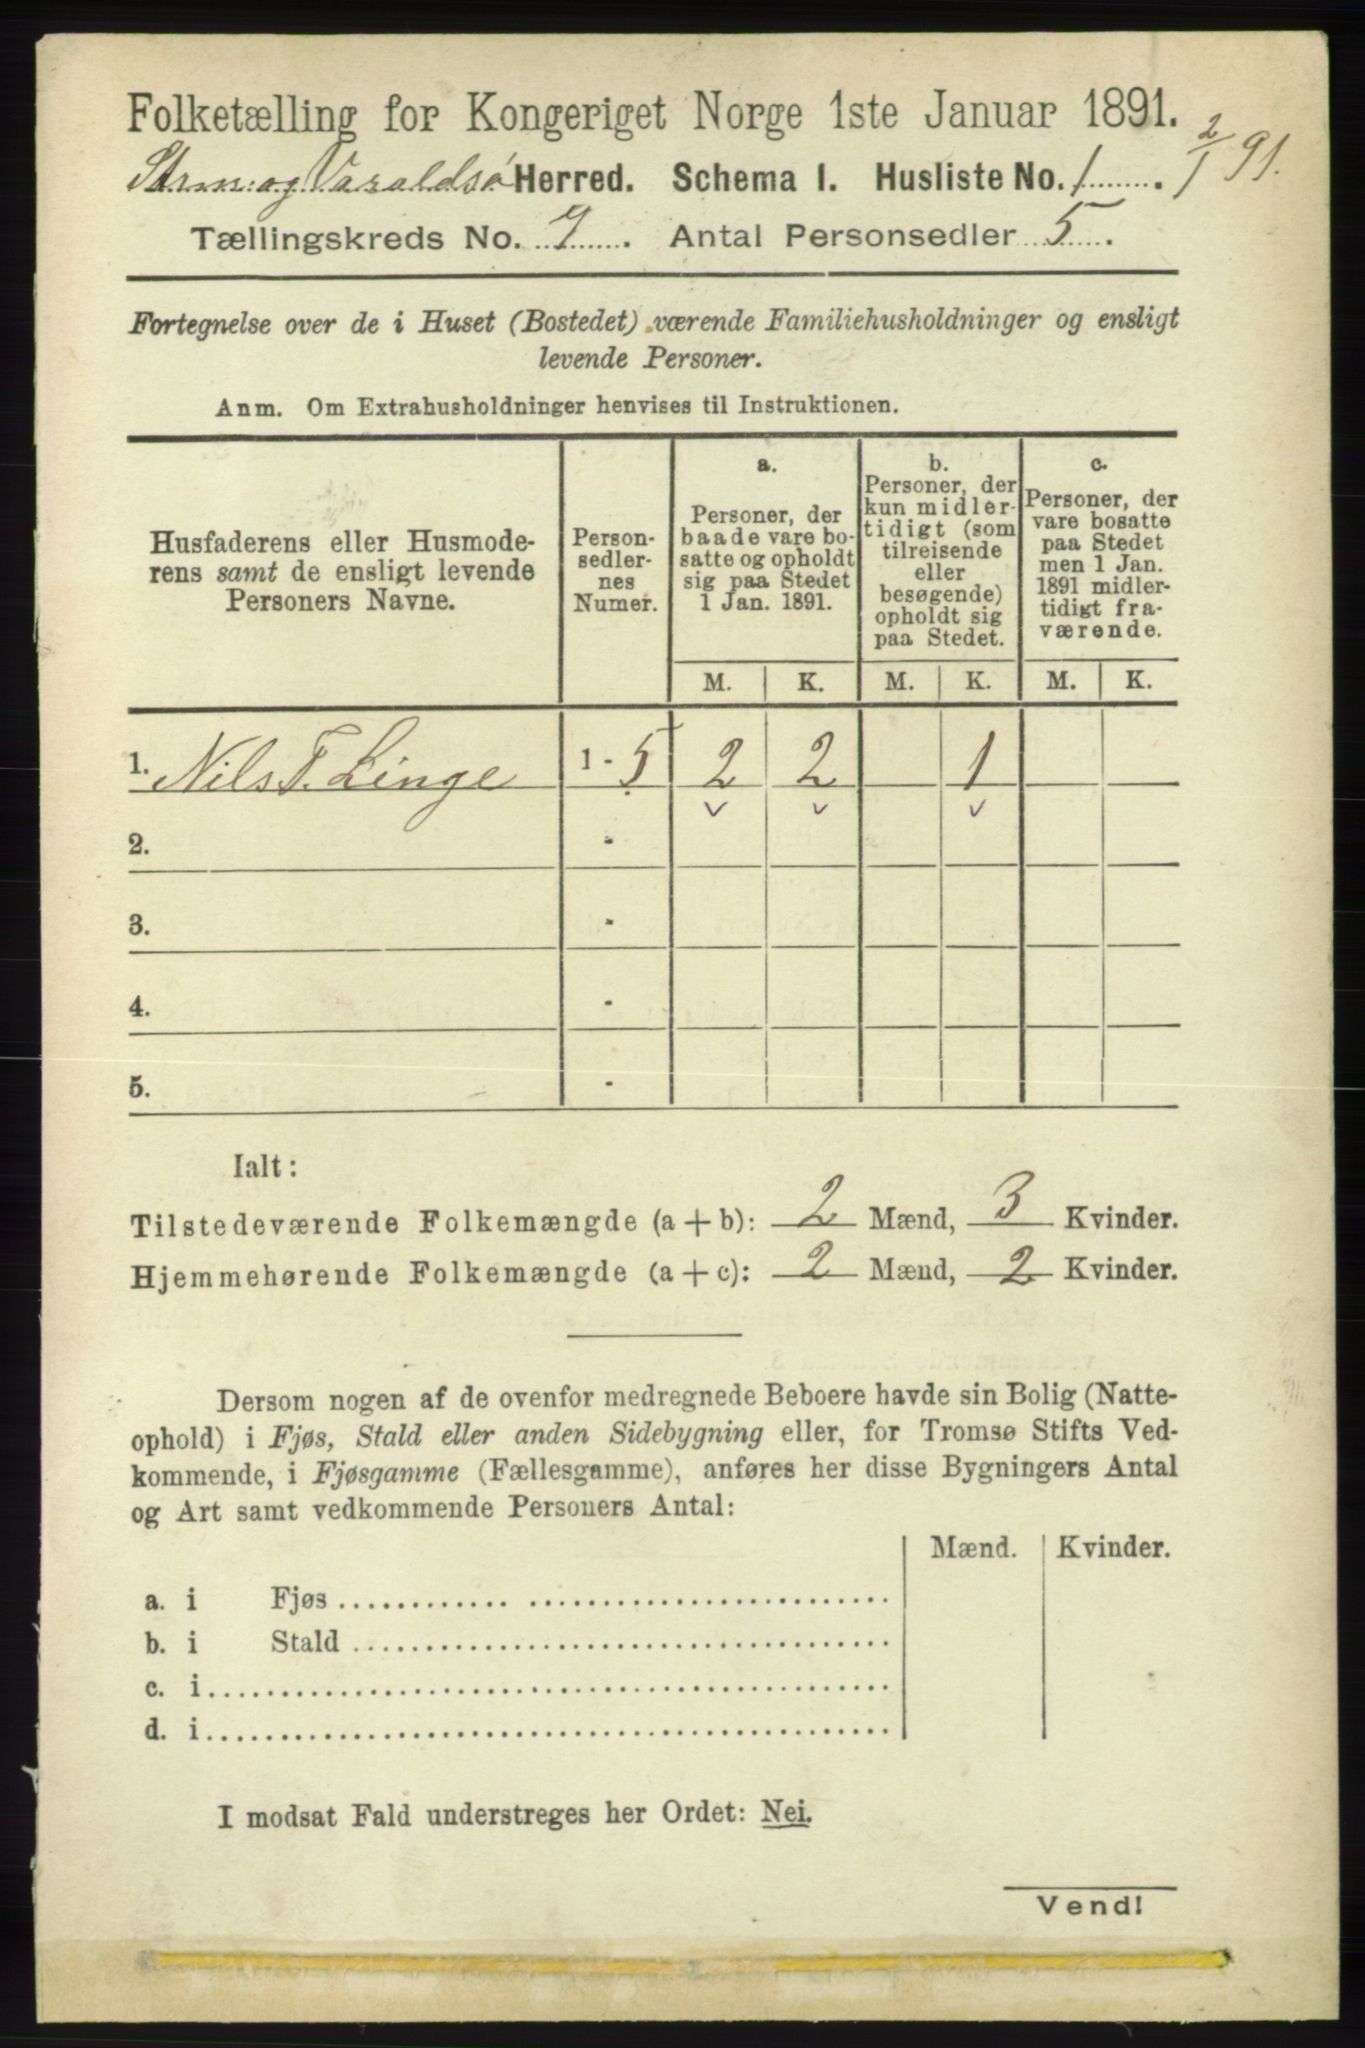 Folketælling for Kongeriget Norge 1ste Januar 1891.
2/1 91.
og Varaldsø Herred. Schema 1. Husliste No. 1
Tællingskreds No. 7. Antal Personsedler 5.
Fortegnelse over de i Huset (Bostedet) værende Familiehusholdninger og ensligt
levende Personer.
Anm. Om Extrahusholdninger henvises til Instruktionen.
Husfaderens eller Husmode-
rens samt de ensligt levende
Personers Navne.
Person-
sedler-
nes
Numer.
a.
Personer, der
baade vare bo-
satte og opholdt
sig paa Stedet
1 Jan. 1891.
b.
Personer, der
kun midler-
tidigt (som
tilreisende
eller
besøgende)
opholdt sig
paa Stedet.
c.
Personer, der
vare bosatte
paa Stedet
men 1 Jan.
1891 midler-
tidigt fra-
værende.
M. K. M. K. M. K.
1. Nils T. Linge 1 - 5 2 2 1
2. -
3. -
4. -
5. -
Ialt:
Tilstedeværende Folkemængde (a + b): 2 Mænd, 3 Kvinder.
Hjemmehørende Folkemængde (a + c): 2 Mænd, 2 Kvinder.
Dersom nogen af de ovenfor medregnede Beboere havde sin Bolig (Natte-
ophold) i Fjøs, Stald eller anden Sidebygning eller, for Tromsø Stifts Ved-
kommende, i Fjøsgamme (Fællesgamme), anføres her disse Bygningers Antal
og Art samt vedkommende Personers Antal:
Mænd. Kvinder.
a. i Fjøs
b. i Stald
c. i
d. i
I modsat Fald understreges her Ordet: Nei.
Vend!